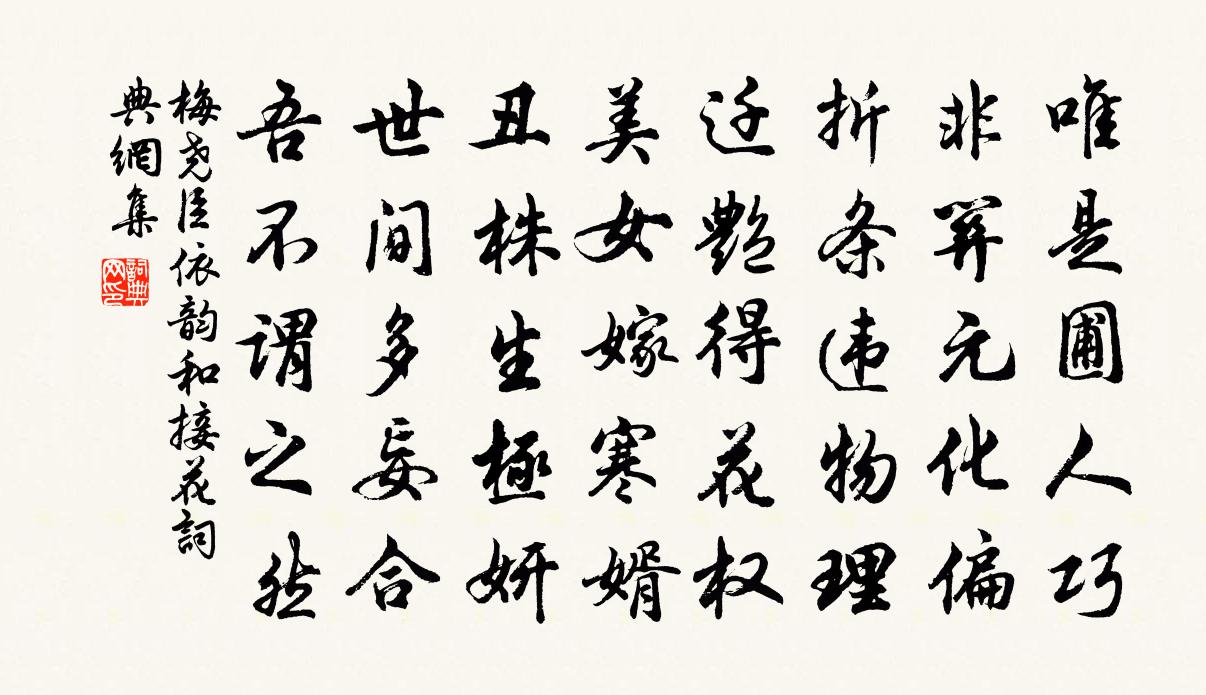 唯是圃人巧
非關元化偏
折条违物理
迁艶得花权
美女嫁寒婿
丑株生極妍
世间多妄合
吾不謂之然
梅尧臣依韵和接花詞
典網集
詞典网印